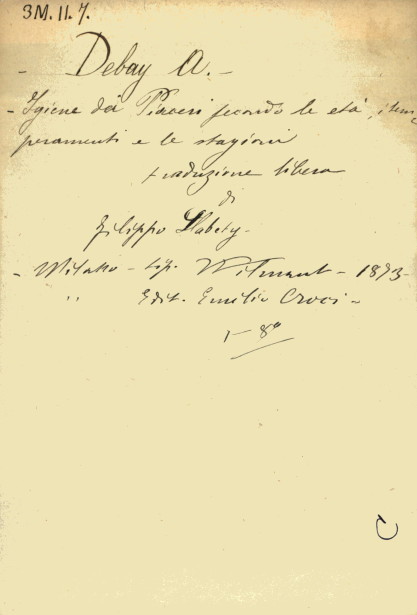 3M. 11. 7.
- Debay A. -
- Igiene dei Piaceri secondo le età, i tem,
peramenti e le stagioni
traduzione libera
di
Filippo
- Milano - tip. Wilmant - 1873 -
„ Edit. Emilio Croci -
1- 8º
C